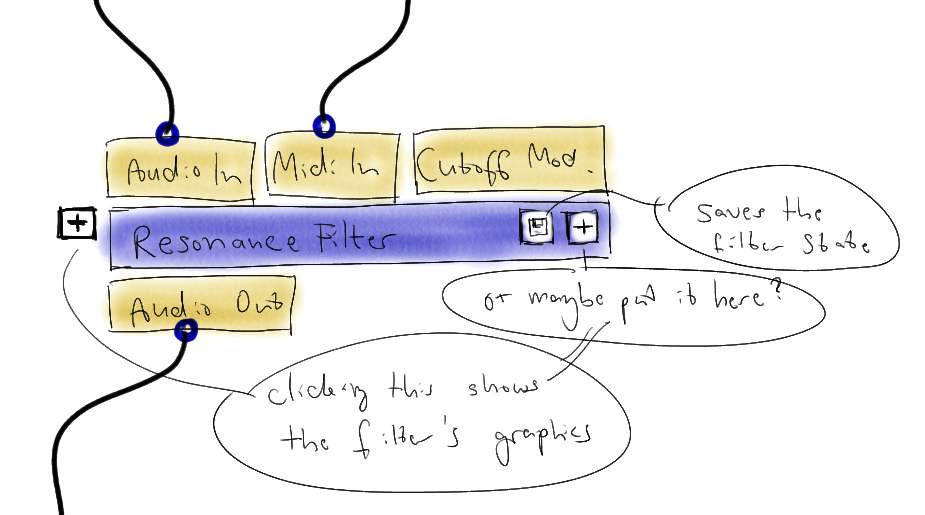 Audio In
Midi In
Cutoff Mod.
+
Resonance Filter
+
saves the
filter state
Audio Out
or maybe put it here?
clicking this shows
the filter's graphics